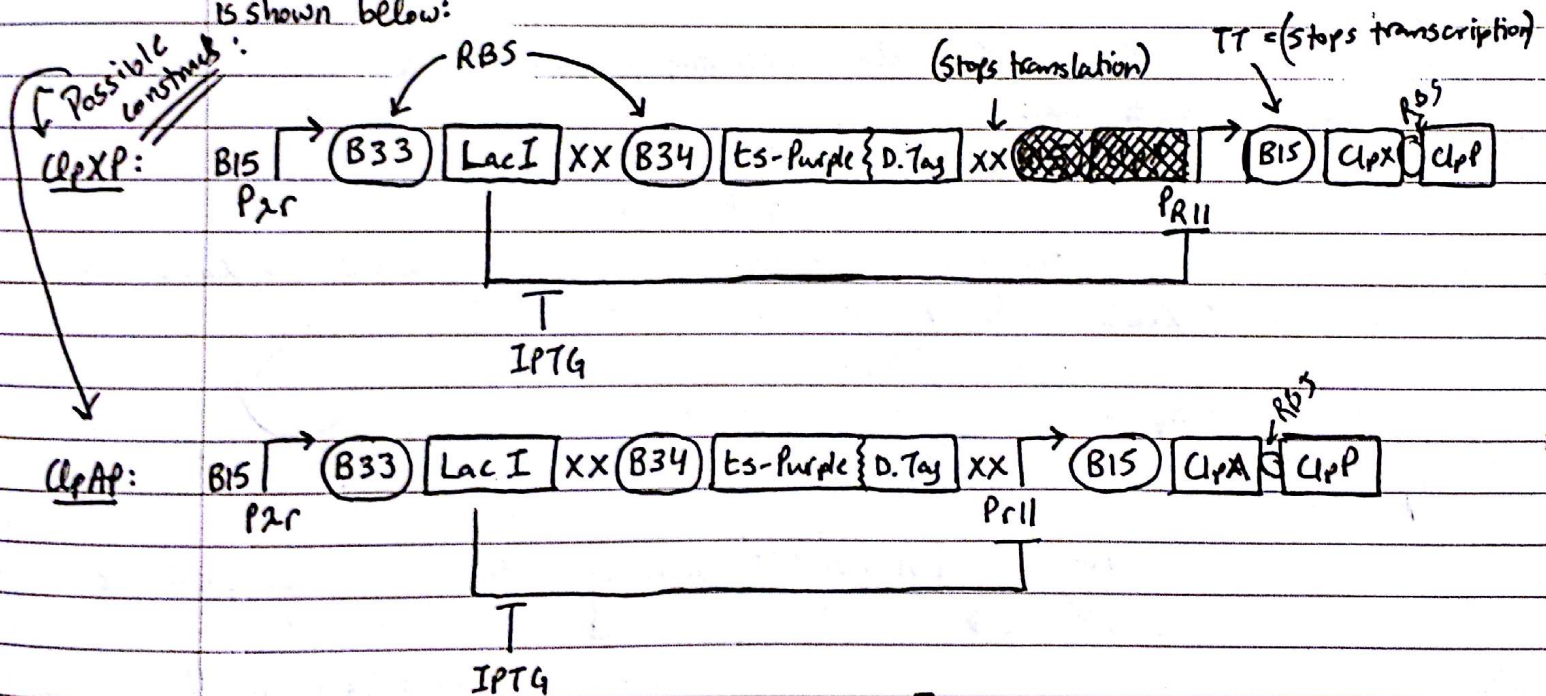 is shown below:
Possible constructs:
RBS
(stops translation)
TT = (stops transcription)
ClpXP: B15 B33 LacI XX B34 ts-Purple D.Tag XX B15 ClpX RBS ClpP
Pλr PR11
IPTG
ClpAP: B15 B33 Lac I XX B34 ts-Purple D.Tag XX B15 ClpA RBS ClpP
Pλr Pr11
IPTG